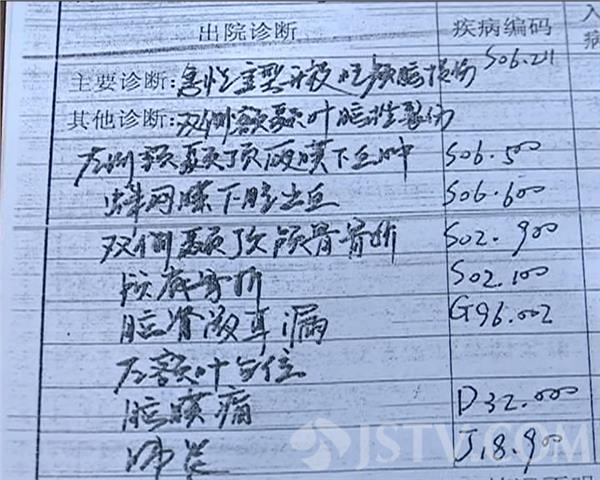 出院诊断 疾病编码 入
病
主要诊断:急性重型开放性颅脑损伤 S06.211
其他诊断:双侧额颞叶脑挫裂伤
左侧额颞顶硬膜下血肿 S06.500
蛛网膜下腔出血 S06.600
双侧颞顶颅骨骨折 S02.900
颅底骨折 S02.100
脑脊液耳漏 G96.002
左额叶占位
脑膜瘤 D32.000
肺炎 J18.900
JSTV.COM